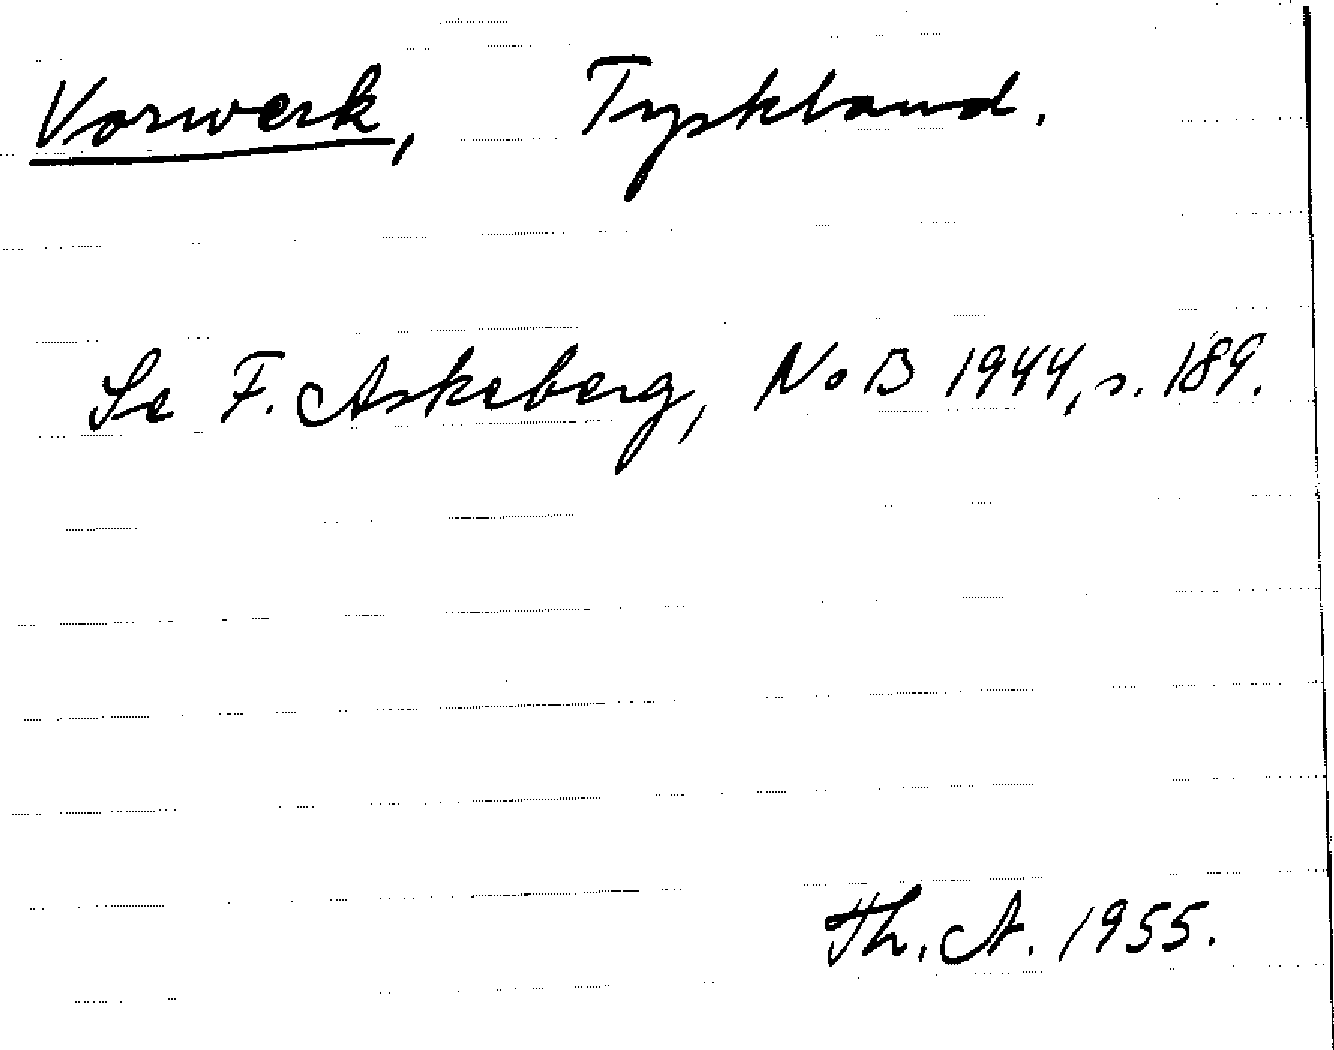 Vorwerk, Tyskland.
Se F. Askeberg, NoB 1944, s. 189.
Th. A. 1955.